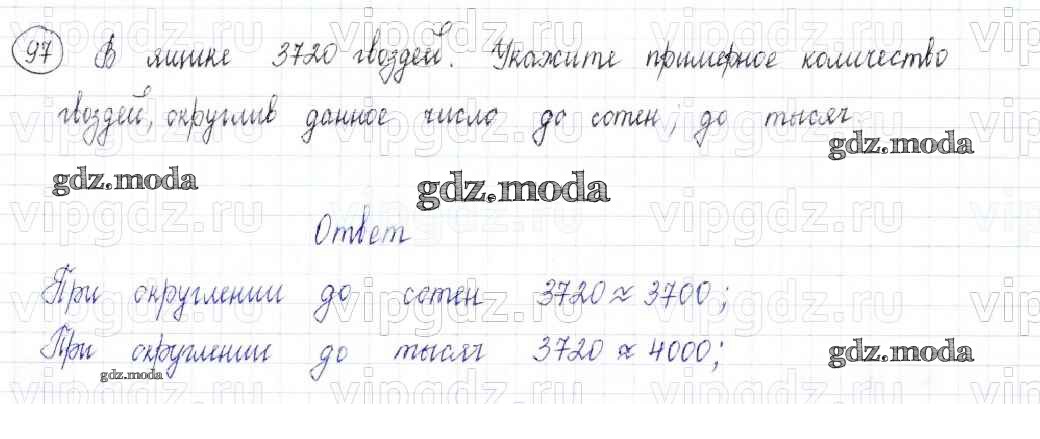 97 В ящике 3720 гвоздей. Укажите примерное количество
гвоздей, округлив данное число до сотен; до тысяч.
gdz.moda
gdz.moda
gdz.moda
Ответ
При округлении до сотен 3720 ≈ 3700;
При округлении до тысяч 3720 ≈ 4000;
gdz.moda
gdz.moda
vipgdz.ru